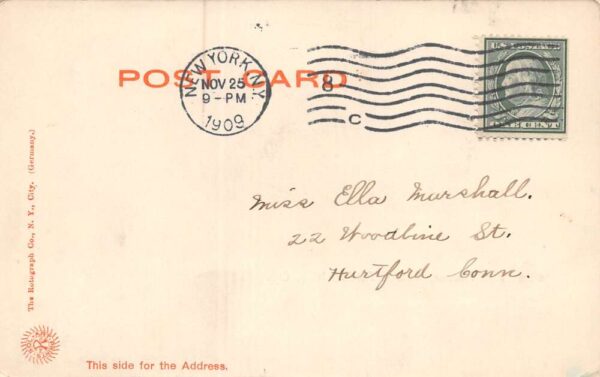 POST CARD
NEW YORK, N.Y.
NOV 25
9-PM
1909
8
C
U.S. POSTAGE
ONE CENT
Miss Ella Marshall.
22 Woodbine St.
Hartford Conn.
The Rotograph Co., N. Y., City. (Germany.)
This side for the Address.